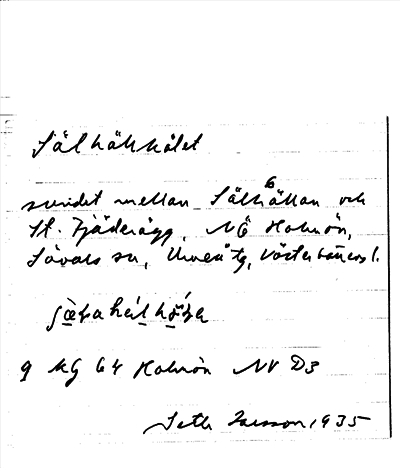 Sälhällhålet
sundet mellan Sälhällan och
St. Fjäderägg, NÖ Holmön,
Sävars sn, Umeå tg, Västerbottens l.
9 kg 64 Holmön NV D3
Seth Larsson 1935